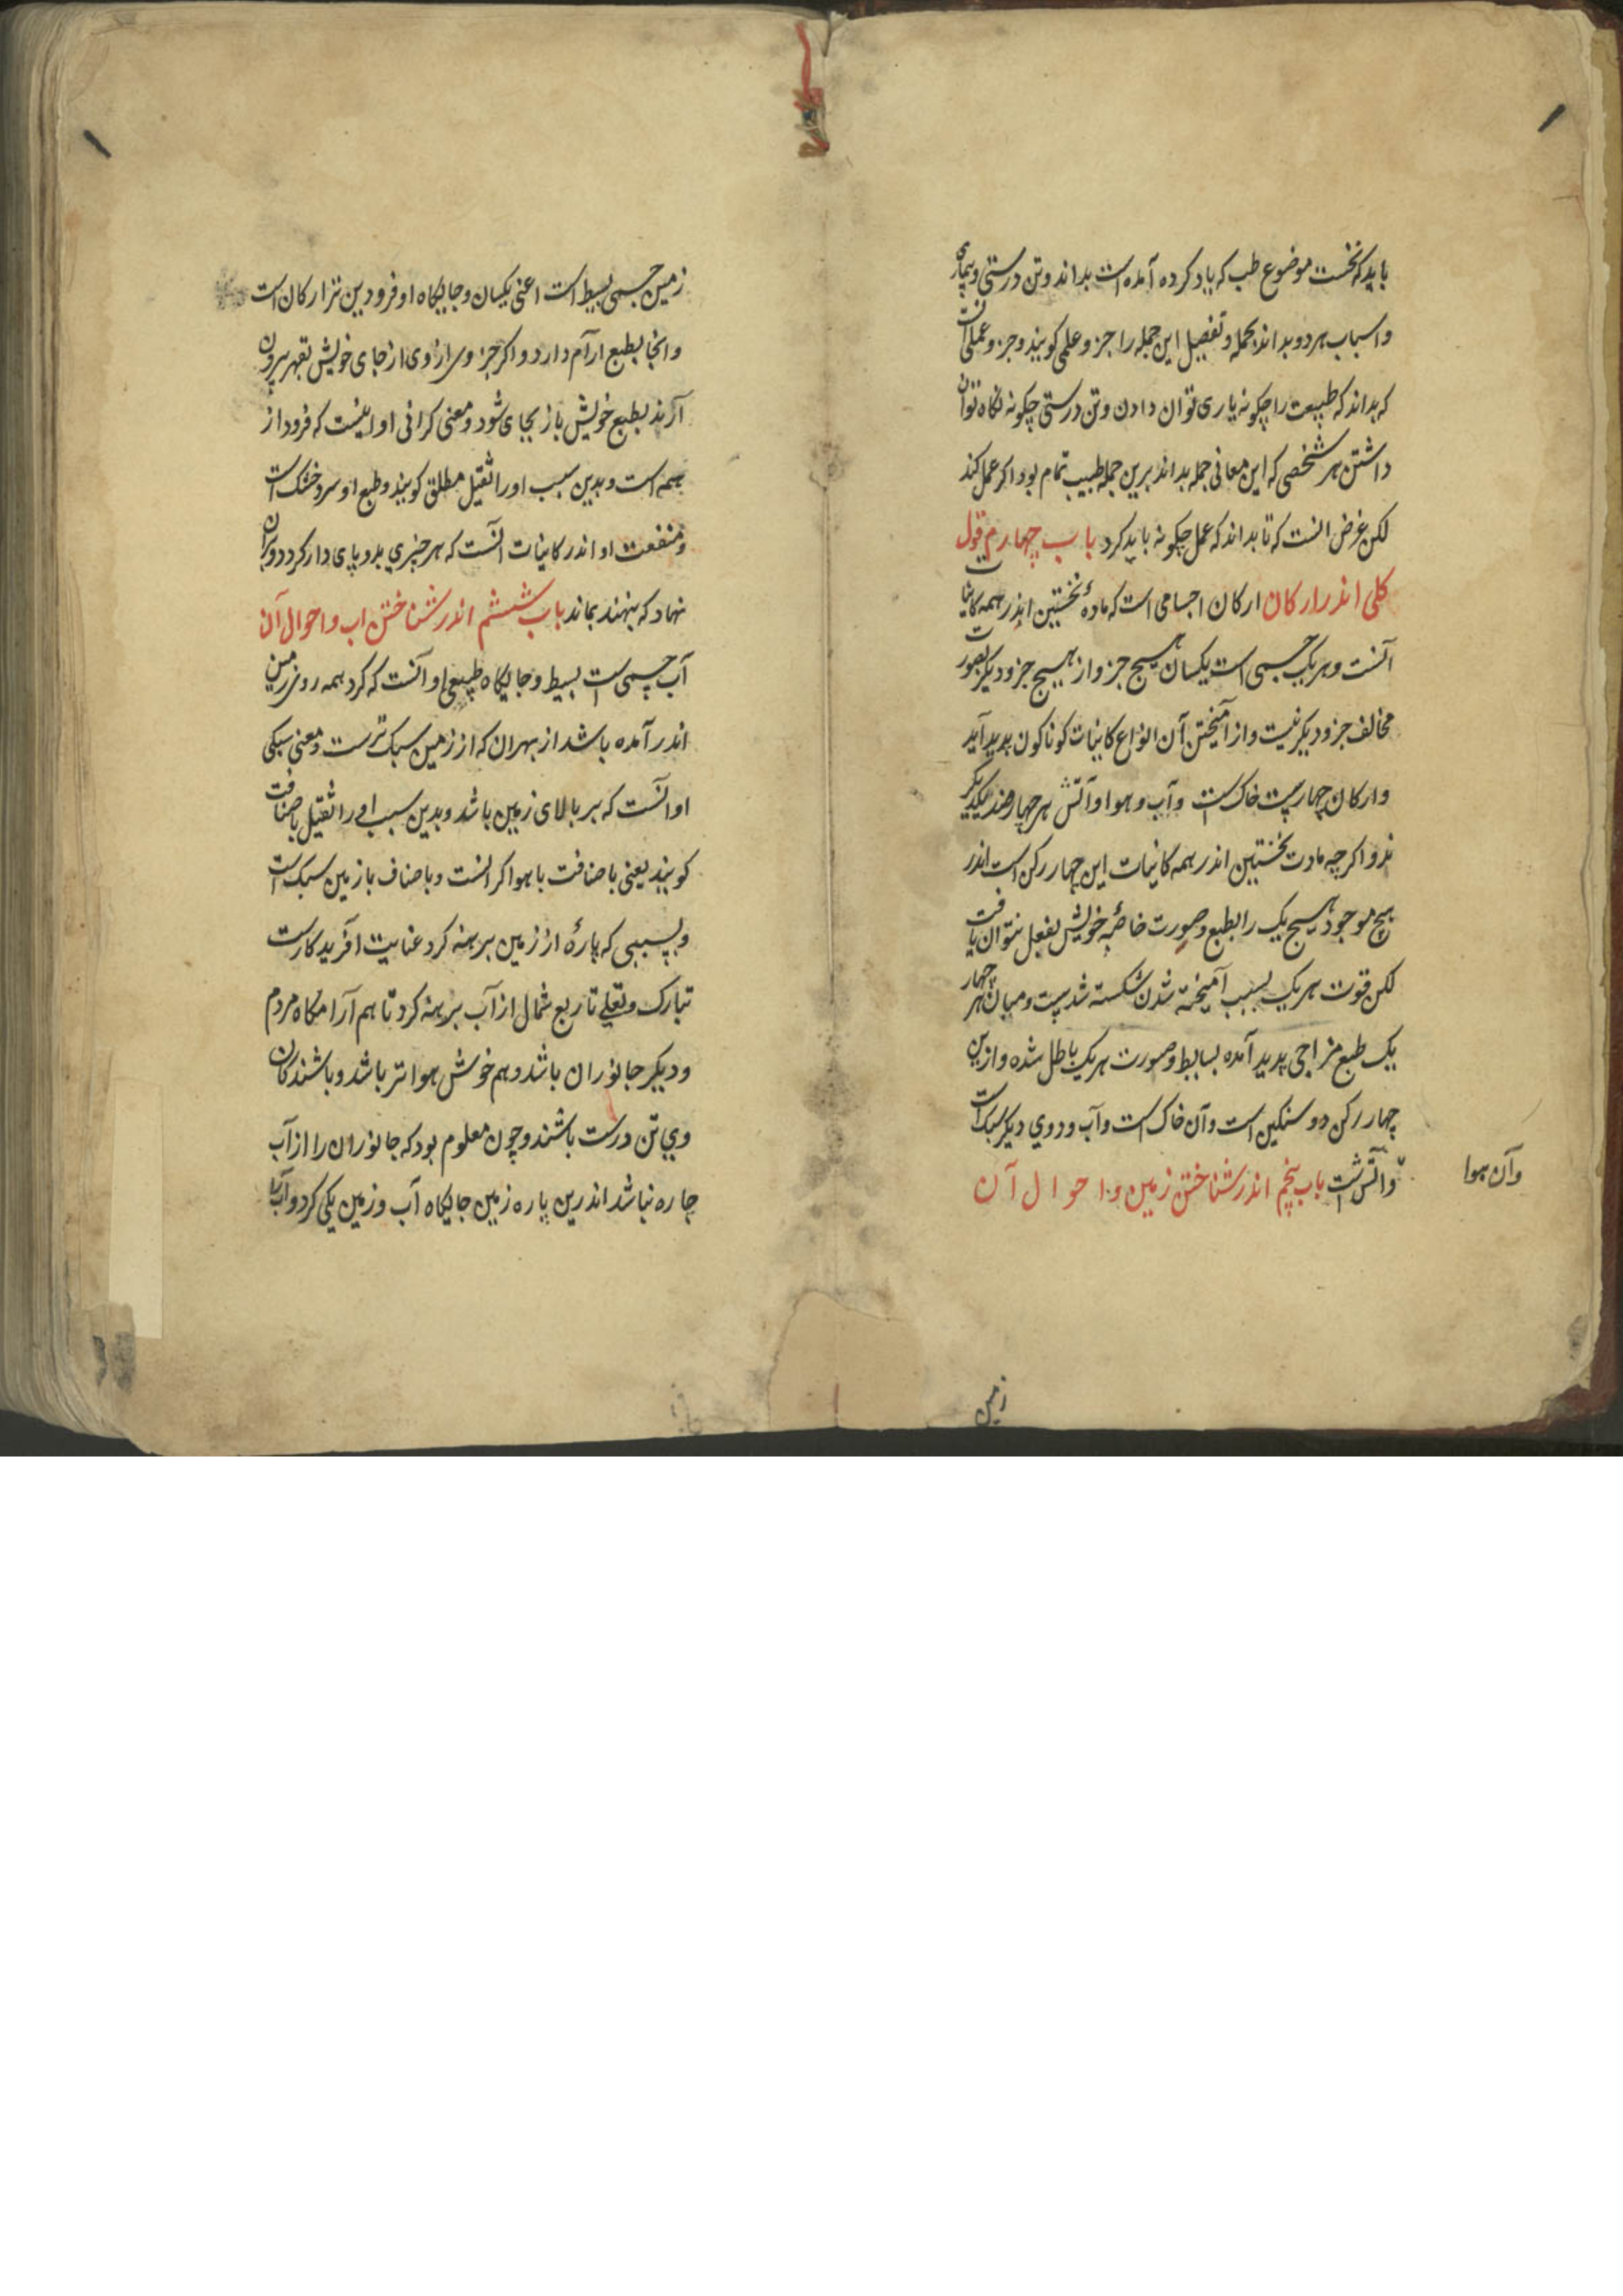 باید که نخست موضوع طب که یاد کرده آمده است بداند و تن درستی و بیماری
و اسباب هر دو بداند بجمله و تفصیل این جمله را جزو علمی کویند و جزو عملی آنست
که بداند که طبیعت را چکونه یاری توان دادن و تن درستی چکونه نکاه توان
داشتن هر شخصی که این معانی جمله بداند برین جمله طبیب تمام بود و اکر عمل کند
لکن غرض انست که تا بداند که عمل چکونه باید کرد باب چهارم قول
کلی اندر ارکان ارکان اجسامی است که مادهٔ نخستین اندر همه کاینات
آنست و هر یک جسمی است یکسان هیچ جزو از هیچ جزو دیکر بصورت
مخالف جزو دیکر نیست و از آمیختن آن انواع کاینات کوناکون پدید آید
و ارکان چهارست خاک است و آب و هوا و آتش هر چهار ضد یکدیکر
ند و اکر چه مادت نخستین اندر همه کاینات این چهار رکن است اندر
هیچ موجود هیچ یک را بطبع و صورت خاصهٔ خویش بفعل نتوان یافت
لکن قوت هر یک بسبب آمیخته شدن شکسته شدست و میان هر چهار
یک طبع مزاجی پدید آمده بسایط و صورت هر یک باطل شده و ازین
چهار رکن دو سنکین است و آن خاک است و آب و دوی دیکر سبک است
و آتش است باب پنجم اندر شناختن زمین و احوال آن
و آن هوا
زمین
زمین جسمی بسیط است اعنی یکسان و جایکاه او فرودین تر ارکان است
و انجا بطبع ارام دارد و اکر جزوی را از وی از جای خویش بقهر بیرون
آرند بطبع خویش باز بجای شود و معنی کرانی او اینست که فرود از
همه است و بدین سبب او را ثقیل مطلق کویند و طبع او سرد و خشک است
و منفعت او اندر کاینات آنست که هر چیزی بدو پای دار کردد و بران
نهاد که بنهند بماند باب ششم اندر شناختن اب و احوال آن
آب جسمی است بسیط و جایکاه طبیعی او آنست که کرد همه روی زمین
اندر آمده باشد از بهر ان که از زمین سبک ترست و معنی سبکی
او انست که بر بالای زمین باشد و بدین سبب او را ثقیل باضافت
کویند یعنی باضافت با هوا کرانست و باضاف با زمین سبک است
و بسببی که پارهٔ از زمین برهنه کرد عنایت افریدکارست
تبارک و تعلی تا ربع شمال از آب برهنه کرد تا هم آرامکاه مردم
و دیکر جانوران باشد و هم خوش هواتر باشد و باشندکان
وی تن درست باشند و چون معلوم بود که جانوران را از آب
چاره نباشد اندرین پاره زمین جایکاه آب و زمین یکی کرد و آب را